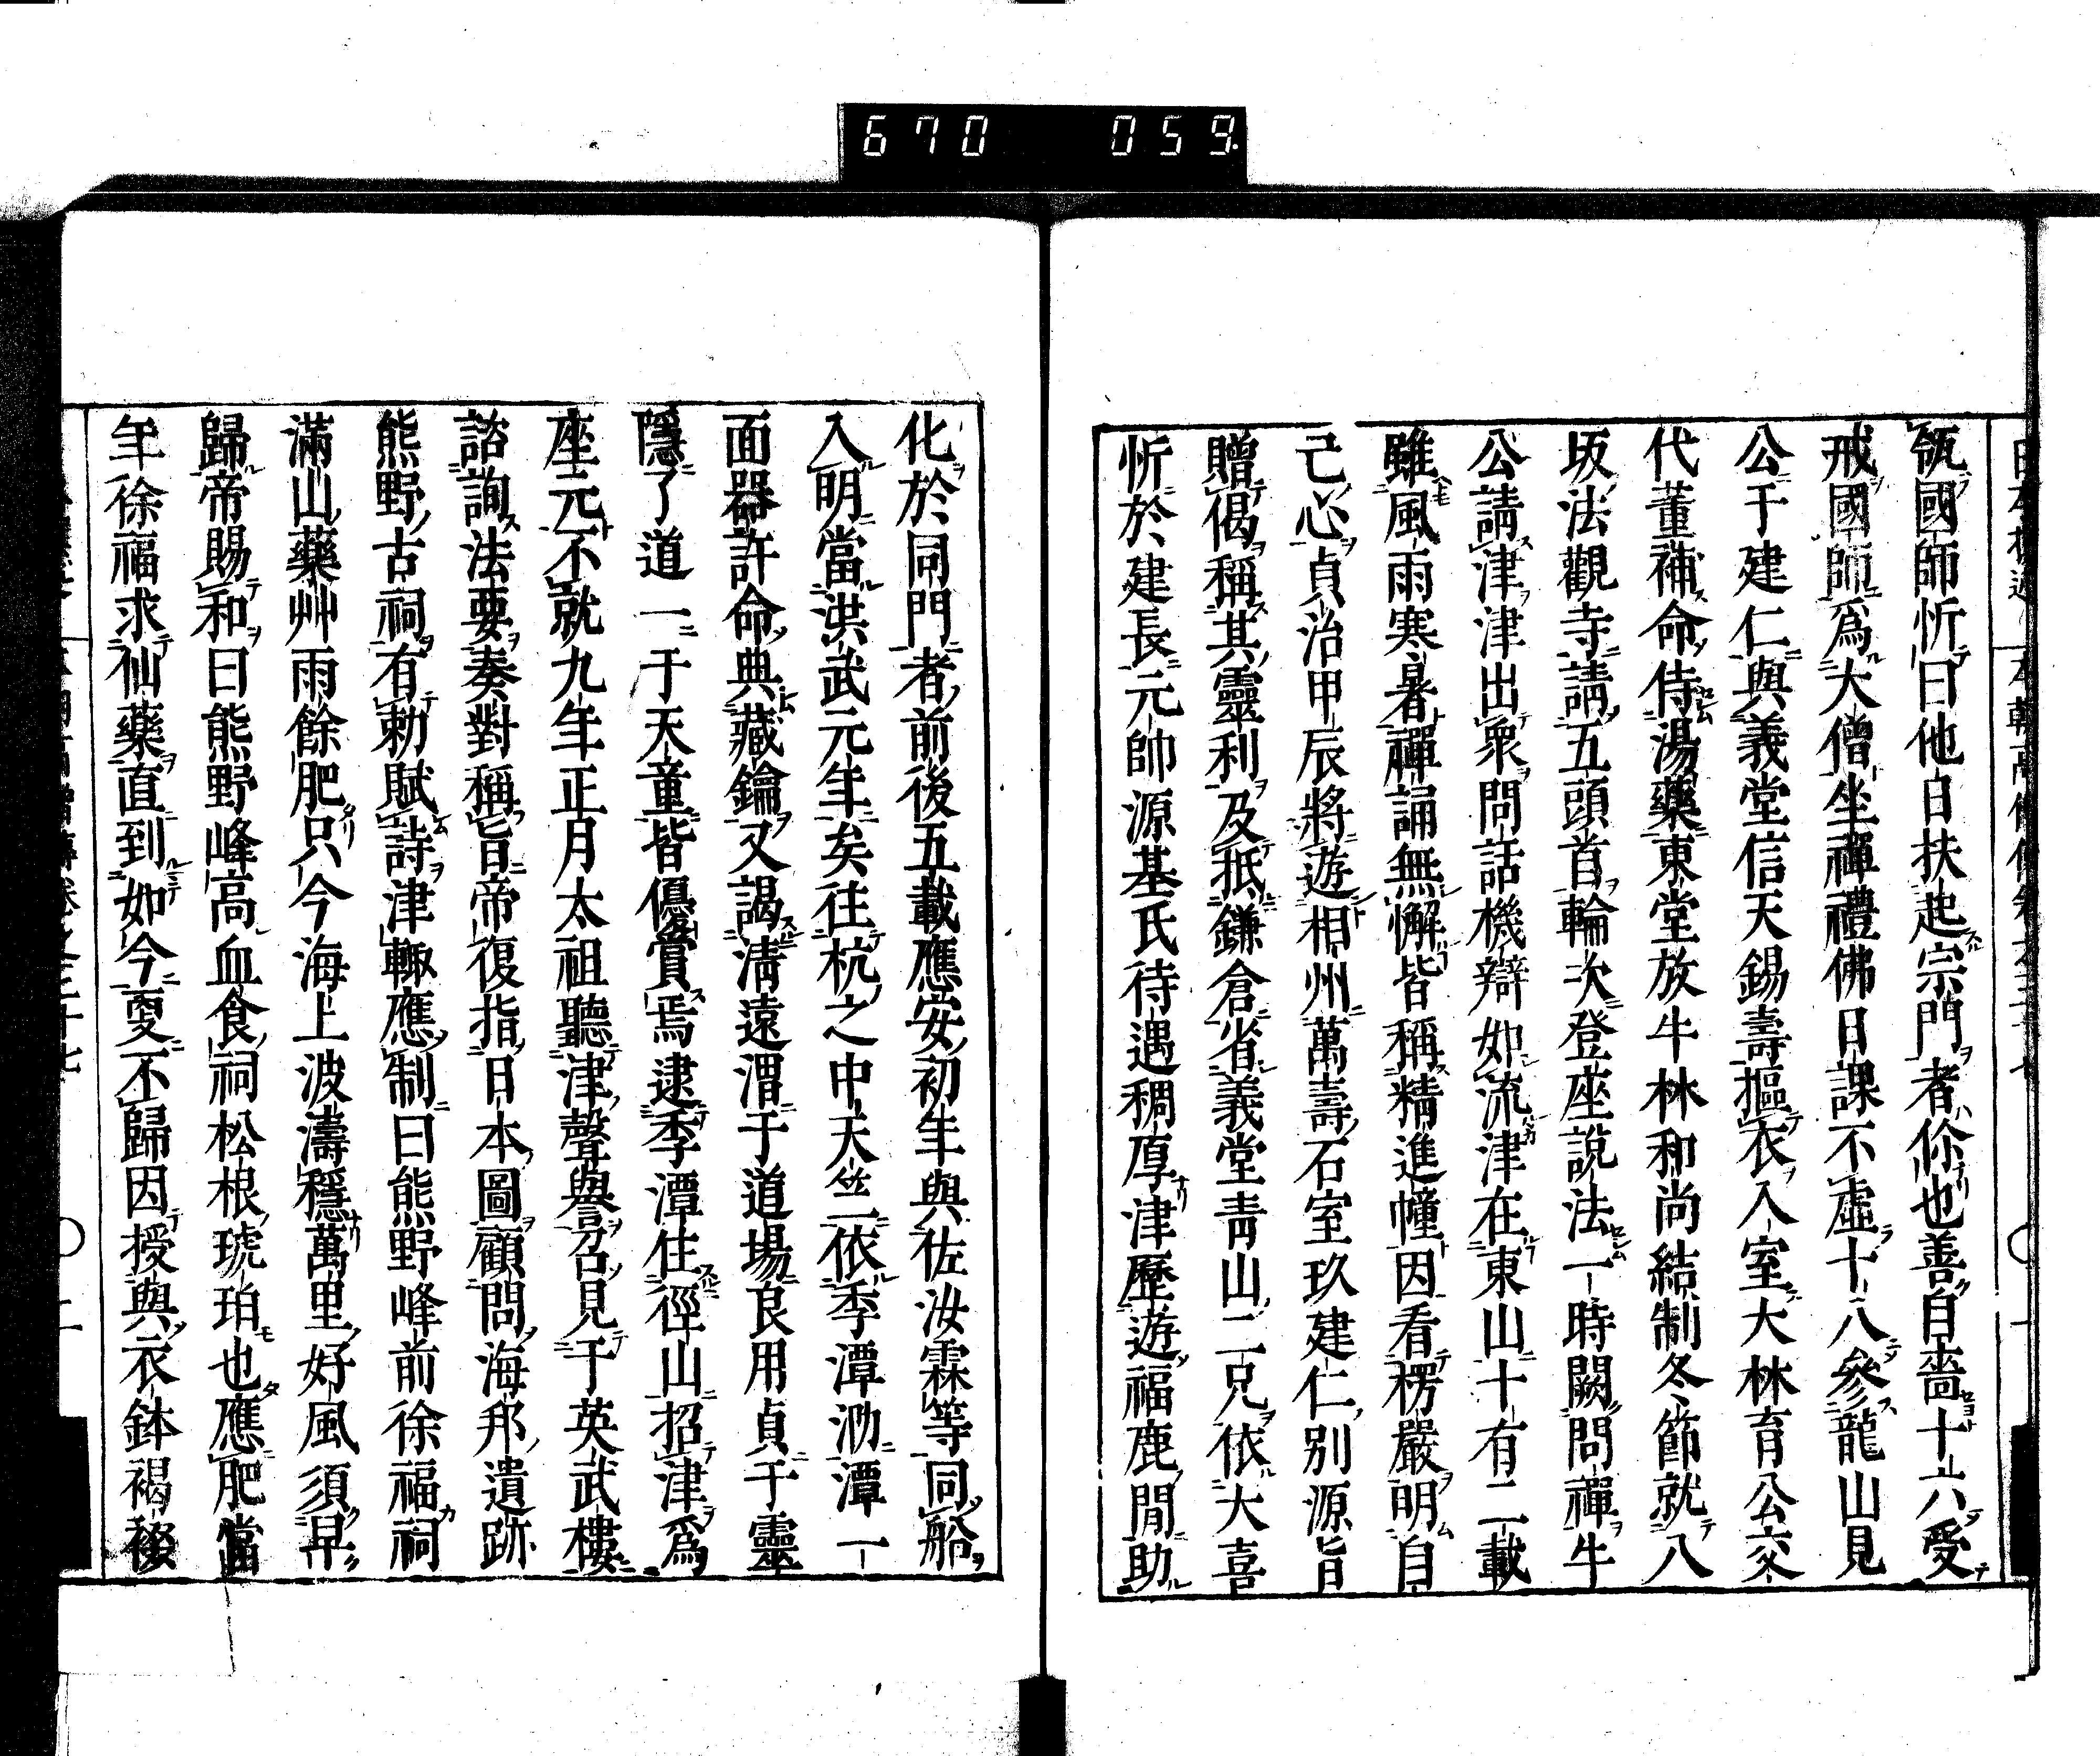 670 059
瓴國師忻曰他日扶起宗門者你也善自嗇十六受
戒國師爲大僧坐禪禮佛日課不虛十八參龍山見
公于建仁與義堂信天錫壽摳衣入室大林育公交
代董補命侍湯藥東堂放牛林和尚結制冬節就八
坂法觀寺請五頭首輪次登座說法一時闕問禪牛
公請津津出衆問話機辯如流津在東山十有二載
雖風雨寒暑禪誦無懈皆稱精進幢因看楞嚴明自
己心貞治甲辰將遊相州萬壽石室玖建仁別源旨
贈偈稱其靈利及抵鎌倉省義堂青山二兄依大喜
忻於建長元帥源基氏待遇稠厚津歷遊福鹿間助
化於同門者前後五載應安初年與佐汝霖等同船
入明當洪武元年矣往杭之中天竺依季潭泐潭一
面器許命典藏鑰又謁淸遠渭于道場良用貞于靈
隱了道一于天童皆優賞焉逮季潭住徑山招津爲
座元不就九年正月太祖聽津聲譽召見于英武樓
諮詢法要奏對稱旨帝復指日本圖顧問海邦遺跡
熊野古祠有勅賦詩津輙應制曰熊野峰前徐福祠
滿山藥艸雨餘肥只今海上波濤穩萬里好風須早
歸帝賜和曰熊野峰高血食祠松根琥珀也應肥當
年徐福求仙藥直到如今更不歸因授與衣鉢褐裰